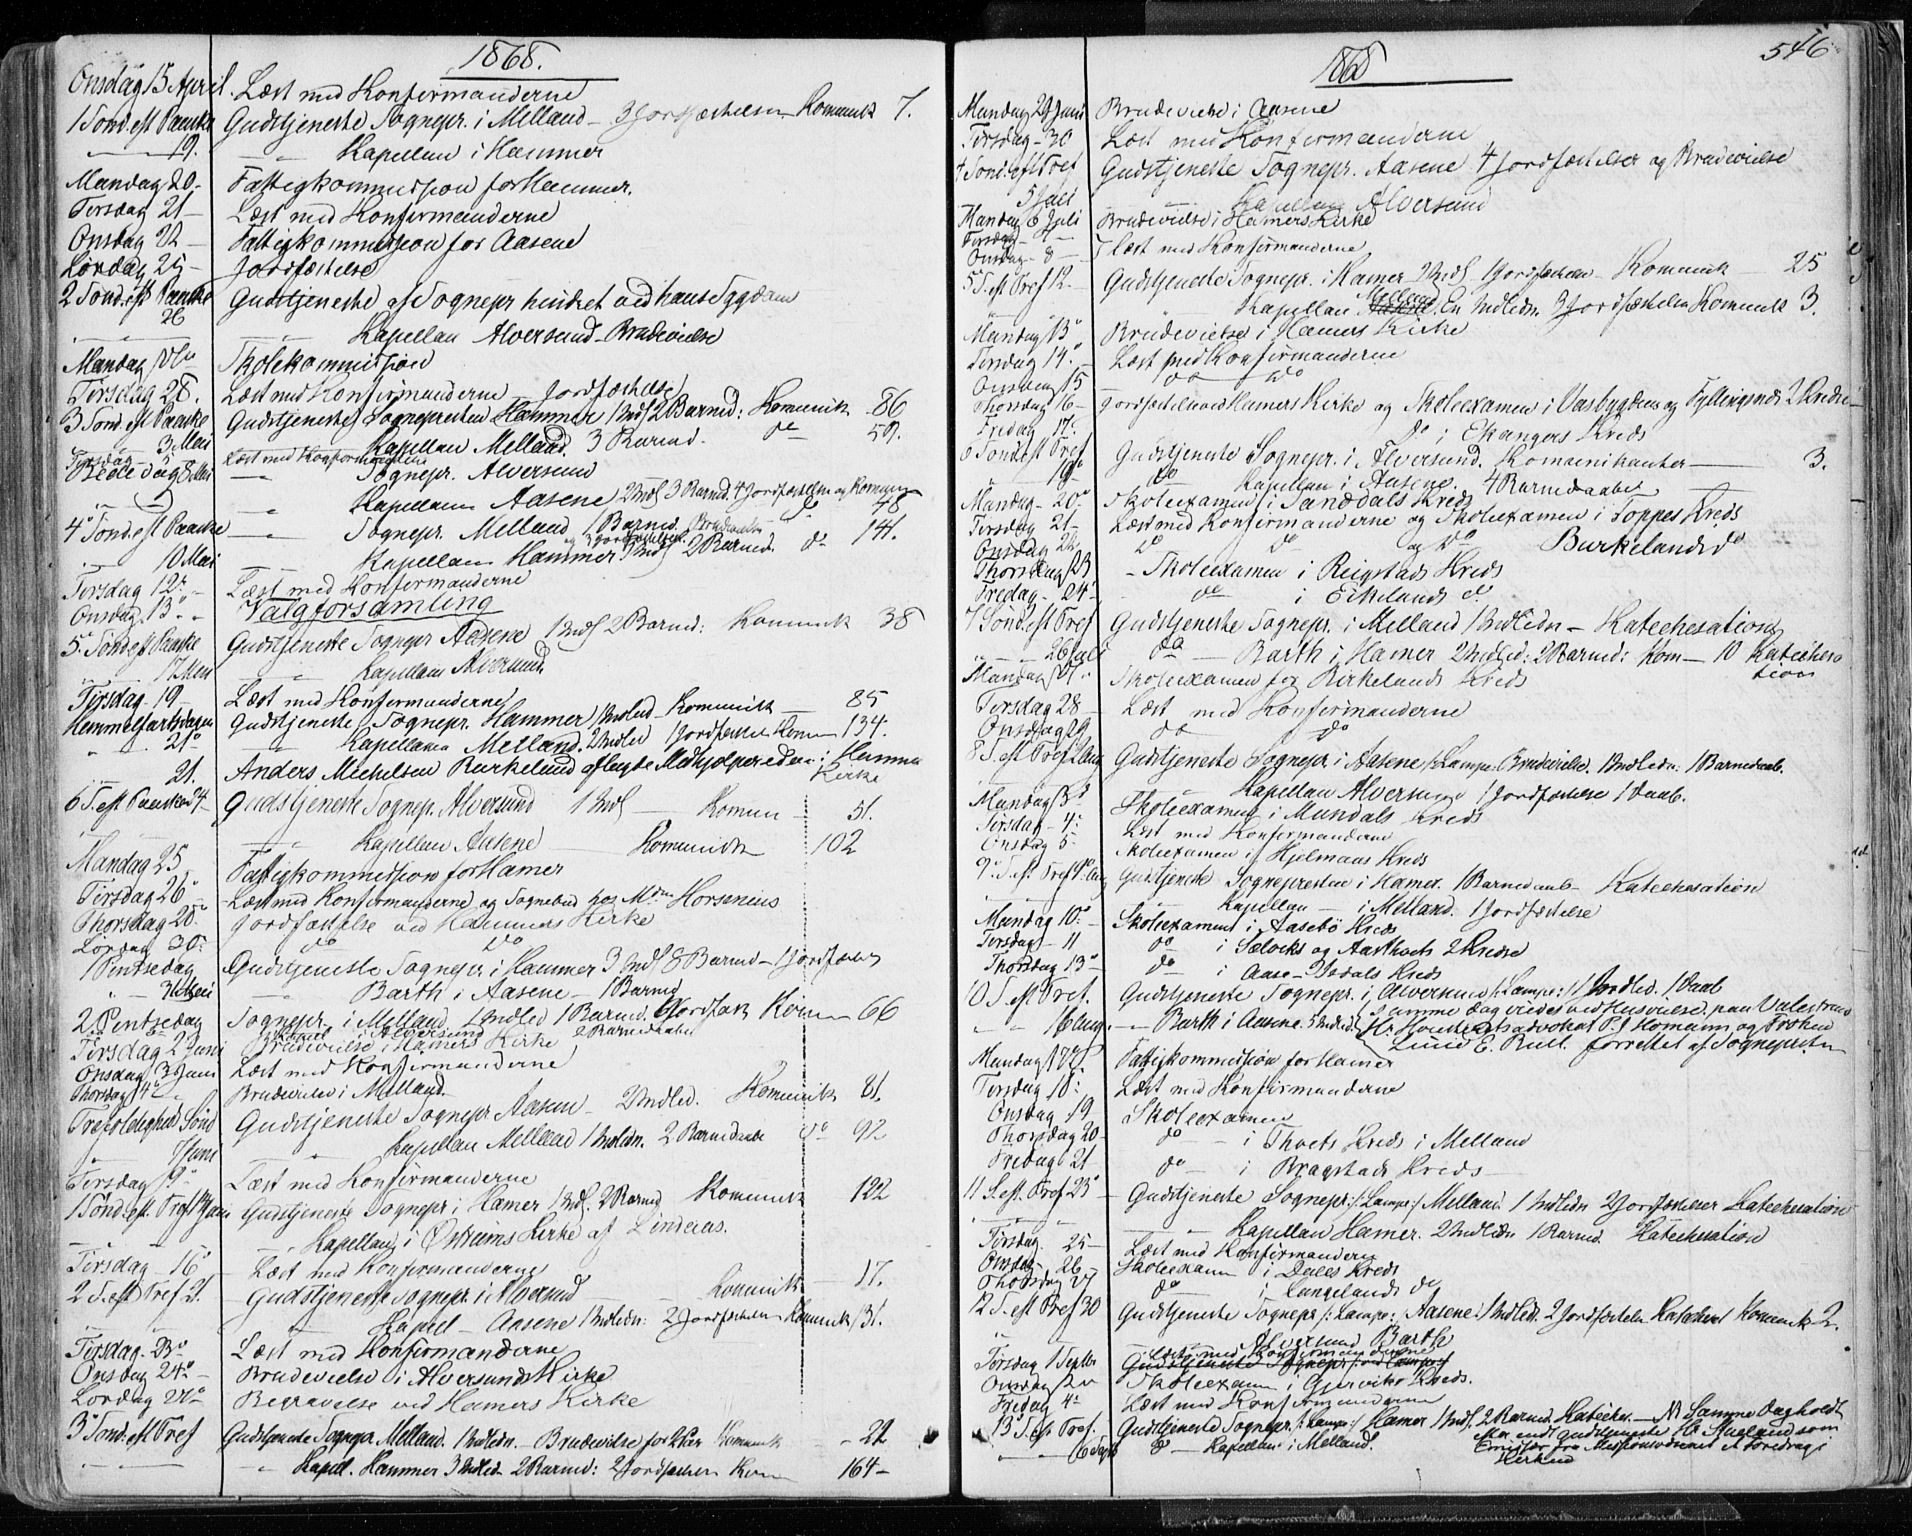 1868.
Onsdag 15 April. Læst med Konfirmanderne
1 Sønd. eft Paaske Gudstjeneste Sognepr. i Melland - 3 Jordfæstelser Komunik 7.
19. Kapellan i Hammer
Mandag 20 - Fattigkommission for Hammer.
Tirsdag 21 - Læst med Konfirmanderne
Onsdag 22 - Fattigkommission for Aasene
Lørdag 25 - Jordfæstelse
2 Sønd. eft Paaske Gudstjeneste af Sognepr hindret ved hans Sygdom
26 Kapellan Alversund - Brudevielse
Mandag Skolekommission
Tirsdag 28. Læst med Konfirmanderne Jordfæstelse
3 Sønd. eft Paaske Gudstjeneste Sognepresten Hammer 1 Indl 2 Barned: Komunik 86
3 Mai Kapellan Melland. 3 Barned. do 59.
Tirsdag 5 Læst med Konfirmanderne
Bededag 8 Mai Sognepr. Alversund
Kapellan Aasene 2 Indl 3 Barned. 4 Jordfæstelser og Komun 48
4 Sønd. eft Paaske Sognepr. Melland 1 Barned. do 141.
10 Mai Kapellan Hammer 3 Indl 2 Barned. do
Tirsdag 12 - Læst med Konfirmanderne
Onsdag 13 - Valgforsamling
5 Sønd. eft Paaske Gudstjeneste Sognepr Aasene 1 Indl 2 Barned: Komunik 38
17 Mai Kapellan Alversund
Tirsdag 19 Læst med Konfirmanderne
Hemmelfartsdagen Gudstjeneste Sognepr. Hammer 1 Indled - Komunik 85
21 Kapellanen Melland. 2 Indled 1 Jordfæstelse Kom 134.
21. Anders Michelsen Burkeland aflagde Medhjælpereden i Hammer
Kirke
6 S. eft Paaske 24 - Gudstjeneste Sognepr. Alversund 1 Indl - Komun - 51.
Kapellan Aasene Komunik 102
Mandag 25 Fattigkommission for Hamer
Tirsdag 26 Læst med Konfirmanderne og Sognebud hos Mdm Horsenius
Thorsdag 28 Jordfæstelse ved Hammers Kirke
Lørdag 30 do do
1 Pintsedag Gudstjeneste Sognepr i Hammer 3 Indl 8 Barned - 1 Jordfæstelse
31 Mai Barth i Aasene - 1 Barned
2 Pintsedag Sognepr. i Melland 1 Indled 1 Barned. Jordfæst Komun 66
Kapel i Alversund 2 Barnedaabe
Tirsdag 2 Juni Brudevielse i Hamers Kirke
Onsdag 3 Juni Læst med Konfirmanderne
Thorsdag 4 Brudevielse i Melland
Trefoldighed Sønd Gudstjeneste Sognepr Aasene - 2 Indled. Komunik 81.
7 Juni Kapellan Melland 1 Indledn. 2 Barnedaabe do 92
Tirsdag 9 Læst med Konfirmanderne
1 Sønd. eft. Tref 14 Juni Gudstjeneste Sognepr i Hamer 1 Indl. 2 Barned Komunik 122
Kapellan i Østreims Kirke af Linderaas.
Tirsdag - 16 Læst med Konfirmanderne
2 S. eft Tref 21. Gudstjeneste Sognepr i Alversund Komunik - 17.
Kapel - Aasene 1 Indledn: 2 Jordfæstelser Komunik 131.
Tirsdag. 23 Læst med Konfirmanderne
Onsdag 24 - Brudevielse i Alversunds Kirke
Lørdag 27 Begravelse ved Hamers Kirke
3 Sønd. eft Tref Gudstjeneste Sognepr Melland. 1 Indledn. - Brudevielse for 2 Par Komunik - 22
Kapel. Hammer 3 Indledn 2 Barned: 2 Jordfæstelser Kom 164 -
546
1868
Mandag 29 Juni Brudevielse i Aasene
Tirsdag - 30 Læst med Konfirmanderne
4 Sønd. eft Tref Gudstjeneste Sognepr. Aasene 4 Jordfæstelser og Brudevielse
5 Juli Kapellan Alversund
Mandag 6 Juli Brudevielse i Hamers Kirke
Tirsdag - 7 -
Onsdag - 8 - Læst med Konfirmanderne
5 S. eft Tref 12 - Gudstjeneste Sognepr. i Hamer 2 Indl 1 Jordfæstelse Komunik - 25
Kapellan Melland En Indledn 3 Jordfæstelser Komunik 3.
Mandag 13 Brudevielse i Hamers Kirke
Tirsdag 14. Læst med Konfirmanderne
Onsdag 15 do do
Thorsdag 16 - Jordfæstelse ved Hamers Kirke og Skoleexamen i Vasbygdens og Fyllingsnæs 2 Kredse
Fredag 17. do i Ekangers Kreds
6 Sønd. eft Tref Gudstjeneste Sognepr. i Alversund. Komunikanter - 3.
19 do Kapellan i Aasene. 4 Barnedaabe
Mandag - 20 Skoleexamen i Sanddals Kreds
Tirsdag 21 - Læst med Konfirmanderne og Skoleexamen i Toppes Kreds
Onsdag 22 do do og do Burkelands do
Thorsdag 23 - Skoleexamen i Reigstads Kreds
Fredag - 24 - do i Eikelands do
7 Sønd. eft Tref Gudstjeneste Sognepr. i Melland 1 Indledn - Katechesation
26 Juli do - Barth i Hamer 2 Indled: 2 Barned: Kom - 10 Katechesa
tion
Mandag 27. Skoleexamen for Birkelands Kreds
Tirsdag 28 - Læst med Konfirmanderne
Onsdag 29 do do
8 S. eft Tref 2 Aug Gudstjeneste Sognepr i Aasene /: Lampe: Brudevielse. 1 Indledn: 1 Barnedaab.
Kapellan Alversund 1 Jordfæstelse 1 Daab.
Mandag 3 Skoleexamen i Mundals Kreds
Tirsdag - 4 - Læst med Konfirmanderne
Onsdag 5 Skoleexamen i Hjelmaas Kreds
9 S. eft Tref 9 Aug Gudstjeneste Sognepresten i Hamer. 1 Barnedaab - Katechesation
Kapellan - i Melland. 1 Jordfæstelse
Mandag 10 Skoleexamen i Aasebø Kreds
Tirsdag - 11 do i Sælviks og Aasthvets 2 Kredse
Thorsdag 13 do i Aase - Isdals Kreds
10 S. eft Tref. Gudstjeneste Sognepr. i Alversund /: Lampe: / 1 Indled. 1 Daab
16 Aug. - Barth i Aasene. 5 Indled. Samme Dag vides ved Husvielse paa Valestrand
Hr. Høiesteretsadvokat P. J Homann og Frøken
Linie E. Bull. forrettet af Sognepresten
Mandag 17 Fattigkommission for Hamer
Tirsdag 18: Læst med Konfirmanderne
Onsdag 19 Skoleexamen
Thorsdag 20 - do - i Thvets Kreds i Melland
Fredag 21 - do - i Bragstads Kreds
11 S. eft. Tref 23 Gudstjeneste Sognepr: /: Lampe: / Melland. 1 Indledn 2 Jordfæstelser Katechesation
Kapellan Hamer. 2 Indledn 1 Barned. Katechesation
Tirsdag. 25 - Læst med Konfirmanderne
Onsdag - 26 - Skoleexamen i Dales Kreds
Thorsdag 27 do i Langelands do
12 S. eft Tref 30 Gudstjeneste Sognepr /: Lampe: / Aasene 1 Indledn. 2 Jordfæstelser Katechesat Komunik 2
Alversund Barth
Tirsdag 1 Septbr Læst med Konfirmanderne
Gudstjeneste Sognepr
Onsdag 2 Skoleexamen i Gjerviks Kreds.
Fredag 4 Læst med Konfirmanderne
13 S. eft Tref. Gudstjeneste Sognepr. /: Lampe: / Hamer 1 Indl. 2 Barned Kateches. - NB Samme Dag holdt
6 Septb do - Kapellan i Melland. Hr Aueland som
Emissær fra Missionsvennen et Foredrag i
Kirken